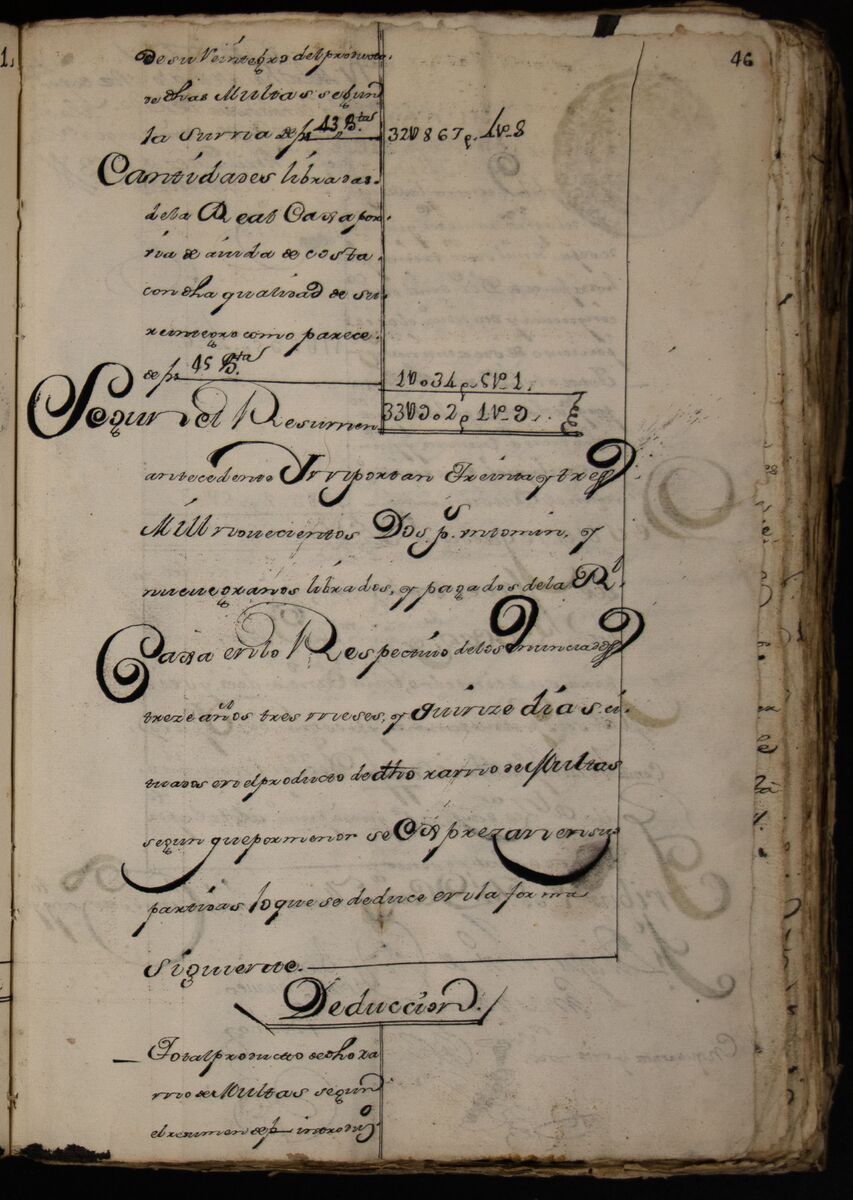 46
de su Reintegro del producto
de dhas Multas segun
la Suma de p 43 Btas 32U867 p. 1 r. 8
Cantidades libradas
de la Real Caxa por
via de aiuda de costa
con dha qualidad de su
reintegro como parece
de p 45 Bta 1U034 p 6 r. 1.
Segun el Resumen 33U902 p 1 r. 9.
antecedente Importan Treinta y tres
Mill novecientos Dos ps. un tomin, y
nueue granos librados, y pagados de la Rl.
Caxa en lo Respectiuo de los enunciados
treze años tres meses, y quinze dias si-
tuados en el producto de dho ramo de Multas
segun que por menor se Exprezan en sus
partidas lo que se deduce en la forma
siguiente.
Deduccion.
Total producto de dho ra
mo de Multas segun
el resumen de p introduz